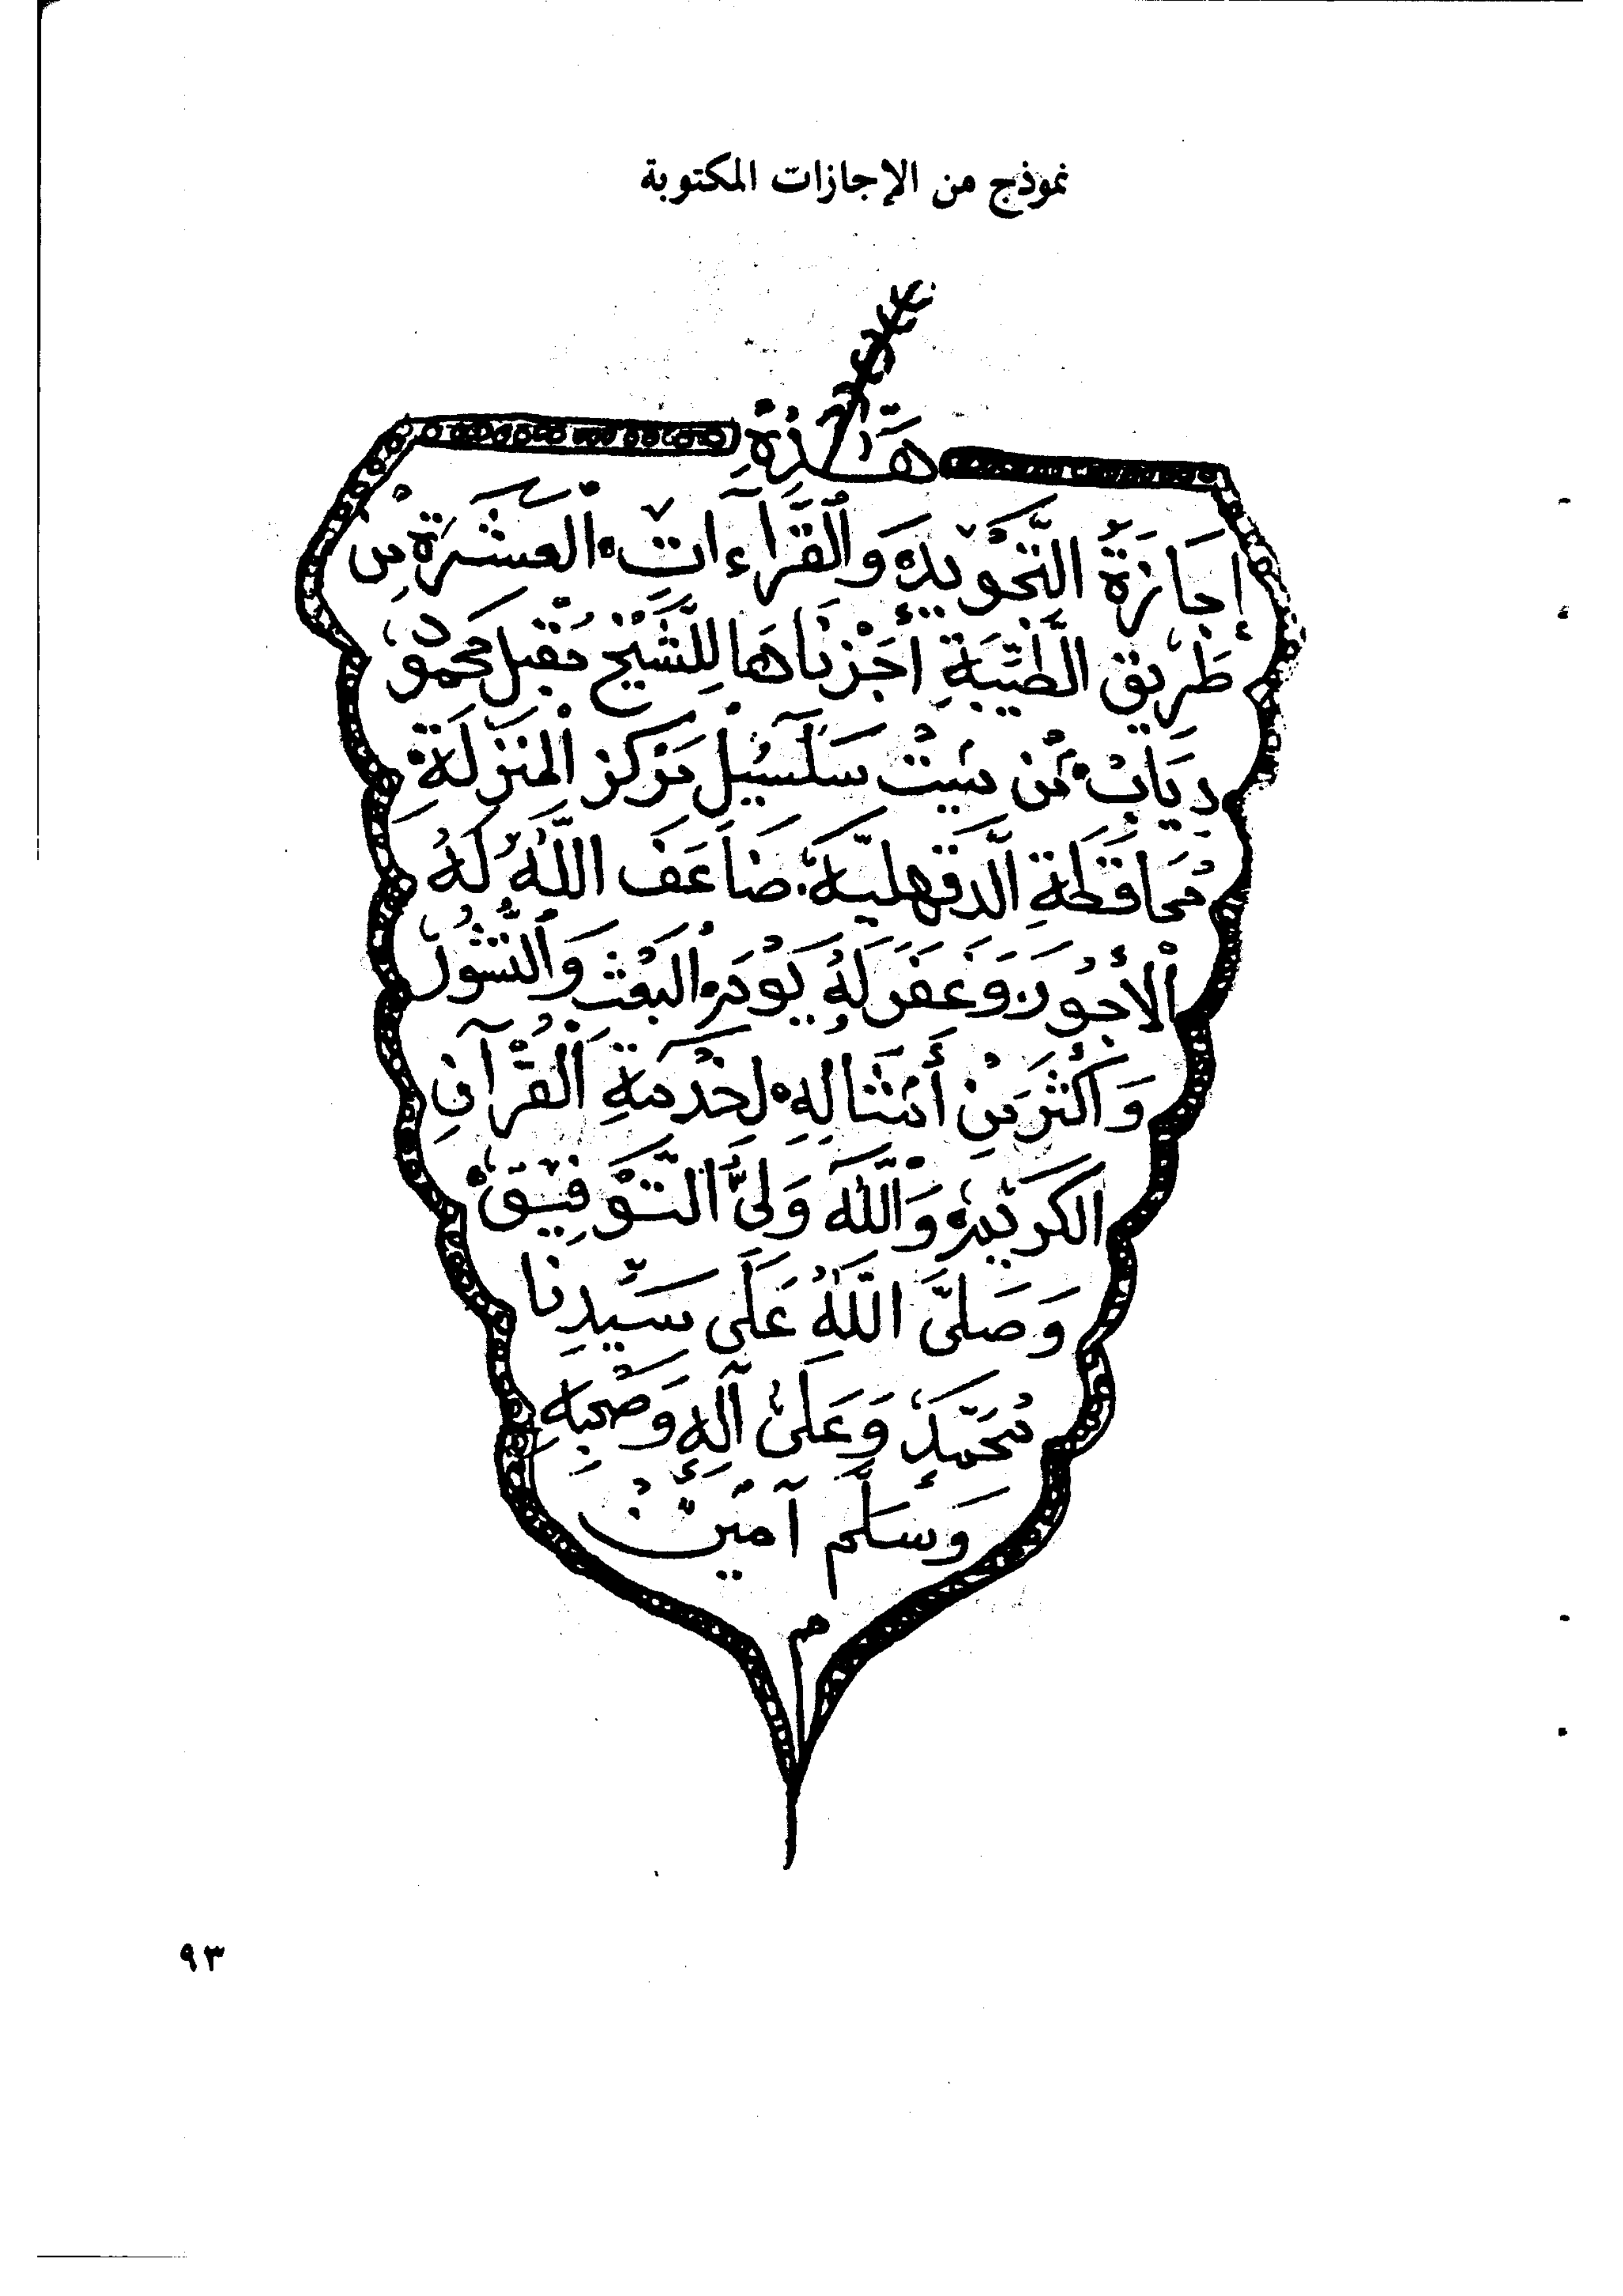 نموذج من الإجازات المكتوبة
هَذِهِ
إِجَازَةُ التَّجْوِيدِ وَالْقِرَاءَاتِ الْعَشْرَةِ مِن
طَرِيقِ الطَّيِّبَةِ أَجَزْنَاهَا لِلشَّيْخِ مُقْبِل مَحْمُود
دِيَاب مِنْ مِيت سَلْسِيل مَرْكَز الْمَنْزِلَةِ
مُحَافَظَةِ الدَّقَهْلِيَّة ضَاعَفَ اللَّهُ لَهُ
الْأُجُورَ وَغَفَرَ لَهُ يَوْمَ الْبَعْثِ وَالنُّشُورْ
وَأَكْثَرَ مِنْ أَمْثَالِهِ لِخِدْمَةِ الْقُرْآنِ
الْكَرِيمِ وَاللَّهُ وَلِيُّ التَّوْفِيقْ
وَصَلَّى اللَّهُ عَلَى سَيِّدِنَا
مُحَمَّدٍ وَعَلَى آلِهِ وَصَحْبِهِ
وَسَلَّم آمِّينْ
م
٩٣